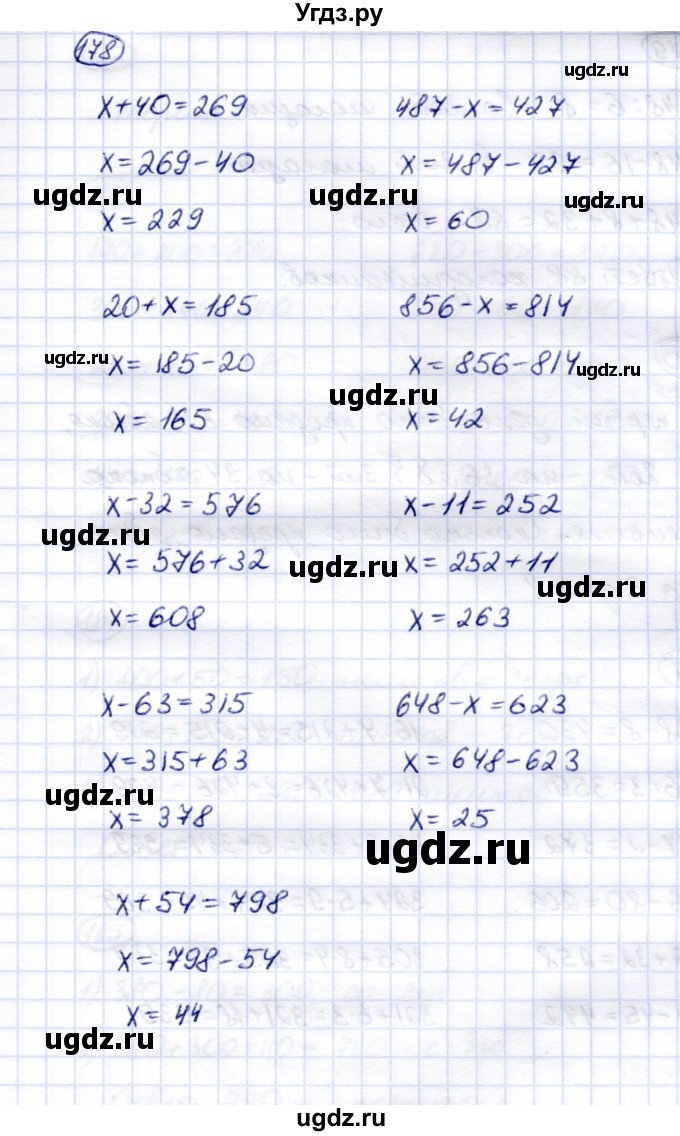 Угдз.ру
178
ugdz.ru
x+40=269
487-x=427
x=269-40
x=487-427
ugdz.ru
ugdz.ru
ugdz.ru
x=229
x=60
20+x=185
856-x=814
ugdz.ru
x=185-20
x=856-814
ugdz.ru
ugdz.ru
x=165
x=42
x-32=576
x-11=252
ugdz.ru
x=576+32
ugdz.ru
x=252+11
ugdz.ru
x=608
x=263
x-63=315
648-x=623
x=315+63
x=648-623
ugdz.ru
x=378
x=25
ugdz.ru
x+54=798
x=798-54
x=44
ugdz.ru
ugdz.ru